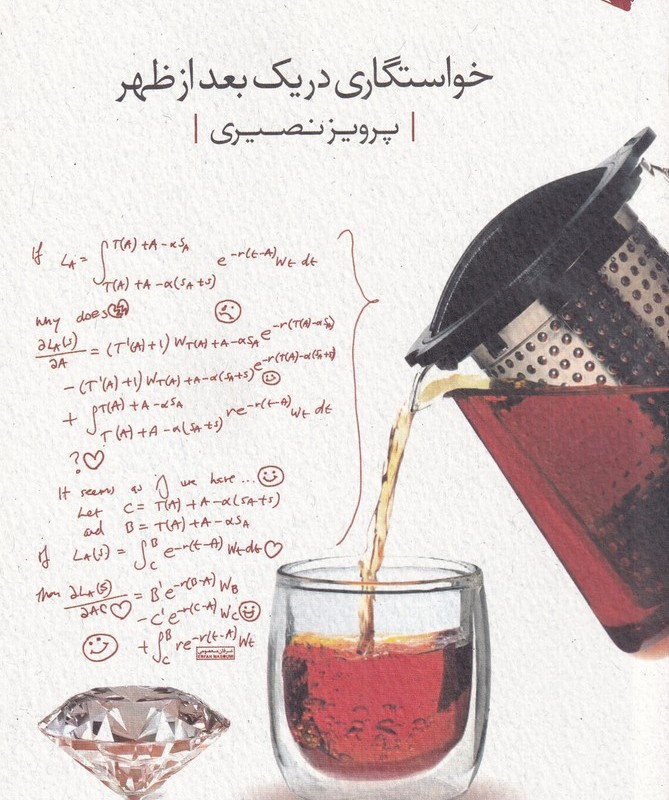 خواستگاری در یک بعد از ظهر
| پرویز نصیری |
If L_A = ∫_{T(A) + A - α(s_A + s)}^{T(A) + A - αs_A} e^{-r(t-A)} w_t dt
why does
∂L_A(s)/∂A = (T'(A) + 1) W_{T(A) + A - αs_A} e^{-r(T(A) - αs_A)}
- (T'(A) + 1) W_{T(A) + A - α(s_A + s)} e^{-r(T(A) - α(s_A + s))}
+ ∫_{T(A) + A - α(s_A + s)}^{T(A) + A - αs_A} r e^{-r(t-A)} w_t dt
?♡
It seems as if we have...
Let C = T(A) + A - α(s_A + s)
and B = T(A) + A - αs_A
if L_A(s) = ∫_C^B e^{-r(t-A)} w_t dt ♡
then ∂L_A(s)/∂A = B' e^{-r(B-A)} W_B
- C' e^{-r(C-A)} W_C
+ ∫_C^B r e^{-r(t-A)} w_t
عرفان معصومی
ERFAN MASOUMI